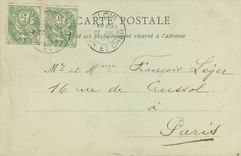 CARTE POSTALE
exclusivement réservé à l'adresse
Mr et Mme François Léger
16 rue de Crussol
à
Paris